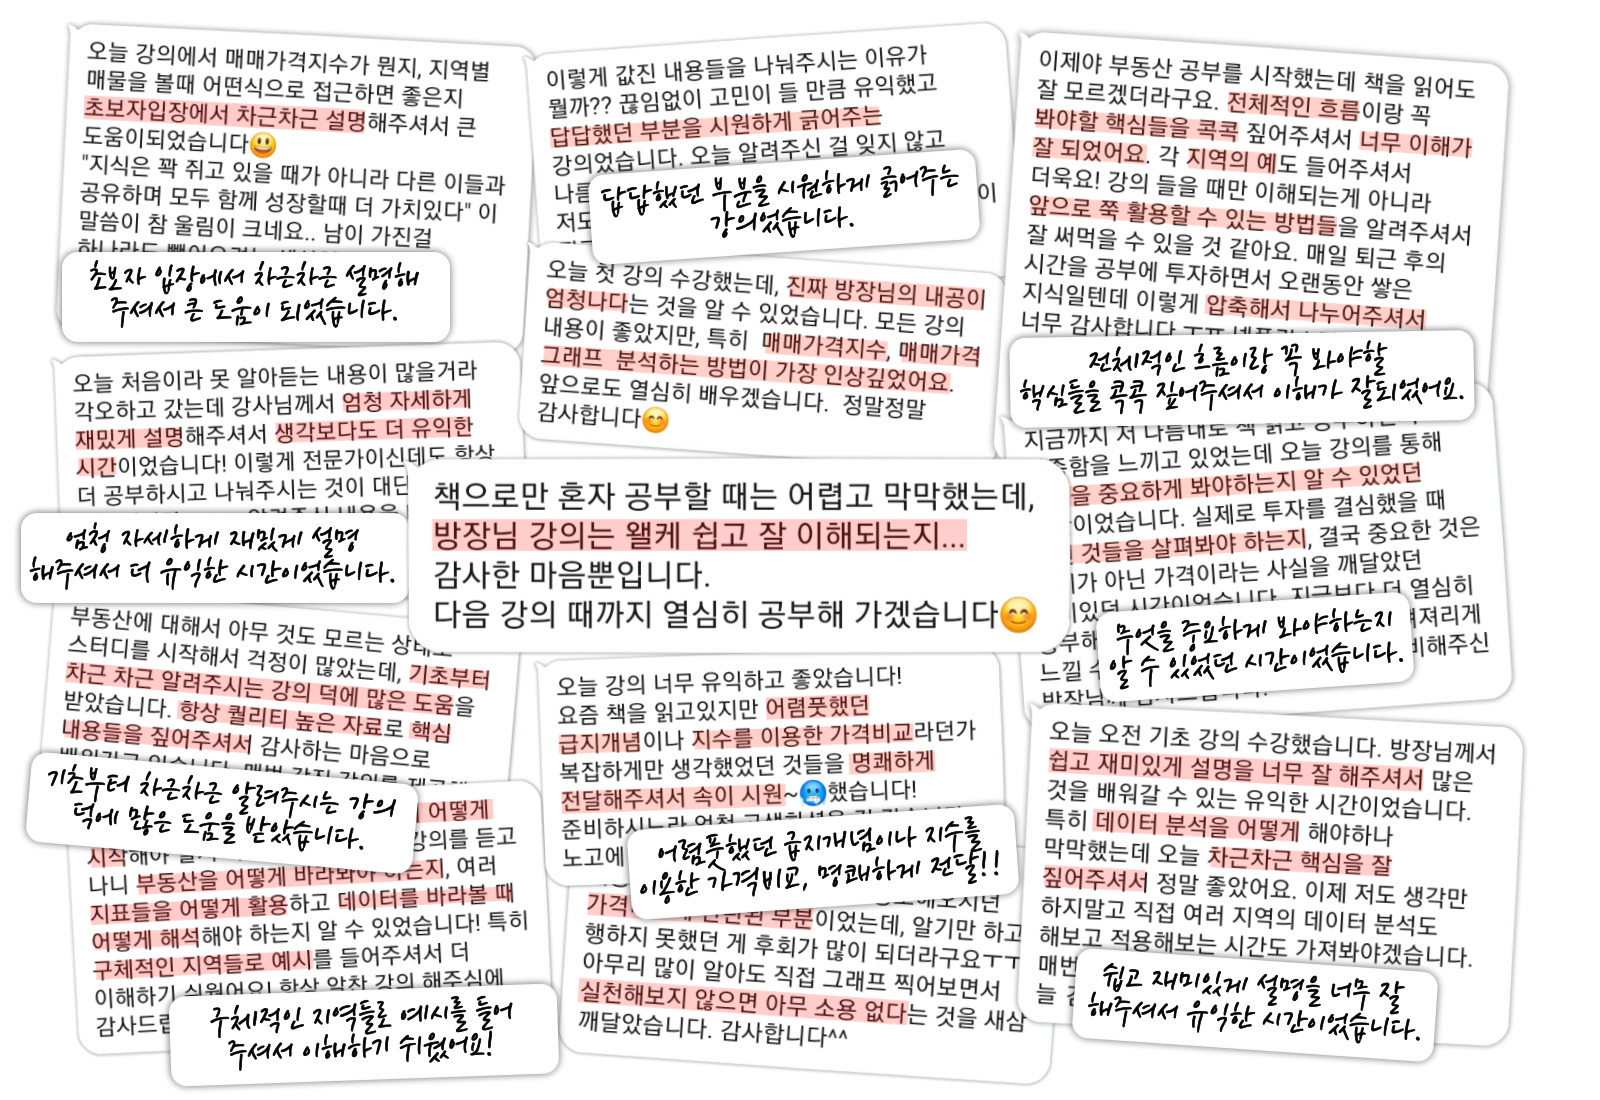 오늘 강의에서 매매가격지수가 뭔지, 지역별
매물을 볼때 어떤식으로 접근하면 좋은지
초보자입장에서 차근차근 설명해주셔서 큰
도움이되었습니다😃
"지식은 꽉 쥐고 있을 때가 아니라 다른 이들과
공유하며 모두 함께 성장할때 더 가치있다" 이
말씀이 참 울림이 크네요.. 남이 가진걸
초보자 입장에서 차근차근 설명해
주셔서 큰 도움이 되었습니다.
이렇게 값진 내용들을 나눠주시는 이유가
뭘까?? 끊임없이 고민이 들 만큼 유익했고
답답했던 부분을 시원하게 긁어주는
강의었습니다. 오늘 알려주신 걸 잊지 않고
이
저도
답답했던 부분을 시원하게 긁어주는
강의었습니다.
이제야 부동산 공부를 시작했는데 책을 읽어도
잘 모르겠더라구요. 전체적인 흐름이랑 꼭
봐야할 핵심들을 콕콕 짚어주셔서 너무 이해가
잘 되었어요. 각 지역의 예도 들어주셔서
더욱요! 강의 들을 때만 이해되는게 아니라
앞으로 쭉 활용할 수 있는 방법들을 알려주셔서
잘 써먹을 수 있을 것 같아요. 매일 퇴근 후의
시간을 공부에 투자하면서 오랜동안 쌓은
지식일텐데 이렇게 압축해서 나누어주셔서
너무 감사합니다
전체적인 흐름이랑 꼭 봐야할
핵심들을 콕콕 짚어주셔서 이해가 잘되었어요.
오늘 첫 강의 수강했는데, 진짜 방장님의 내공이
엄청나다는 것을 알 수 있었습니다. 모든 강의
내용이 좋았지만, 특히 매매가격지수, 매매가격
그래프 분석하는 방법이 가장 인상깊었어요.
앞으로도 열심히 배우겠습니다. 정말정말
감사합니다😊
오늘 처음이라 못 알아듣는 내용이 많을거라
각오하고 갔는데 강사님께서 엄청 자세하게
재밌게 설명해주셔서 생각보다도 더 유익한
시간이었습니다! 이렇게 전문가이신데도 항상
더 공부하시고 나눠주시는 것이 대단
엄청 자세하게 재밌게 설명
해주셔서 더 유익한 시간이었습니다.
책으로만 혼자 공부할 때는 어렵고 막막했는데,
방장님 강의는 왤케 쉽고 잘 이해되는지...
감사한 마음뿐입니다.
다음 강의 때까지 열심히 공부해 가겠습니다😊
지금까지 저 나름대로 책 읽고 공부
함을 느끼고 있었는데 오늘 강의를 통해
을 중요하게 봐야하는지 알 수 있었던
이었습니다. 실제로 투자를 결심했을 때
것들을 살펴봐야 하는지, 결국 중요한 것은
가 아닌 가격이라는 사실을 깨달았던
시간이었습니다. 지금보다 더 열심히
느낄 수
비해주신
무엇을 중요하게 봐야하는지
알 수 있었던 시간이었습니다.
부동산에 대해서 아무 것도 모르는 상태로
스터디를 시작해서 걱정이 많았는데, 기초부터
차근 차근 알려주시는 강의 덕에 많은 도움을
받았습니다. 항상 퀄리티 높은 자료로 핵심
내용들을 짚어주셔서 감사하는 마음으로
기초부터 차근차근 알려주시는 강의
덕에 많은 도움을 받았습니다.
어떻게
강의를 듣고
나니 부동산을 어떻게 바라봐야 하는지, 여러
지표들을 어떻게 활용하고 데이터를 바라볼 때
어떻게 해석해야 하는지 알 수 있었습니다! 특히
구체적인 지역들로 예시를 들어주셔서 더
이해하기 쉬웠어요! 항상 알찬 강의 해주심에
감사드립
구체적인 지역들로 예시를 들어
주셔서 이해하기 쉬웠어요!
오늘 강의 너무 유익하고 좋았습니다!
요즘 책을 읽고있지만 어렴풋했던
급지개념이나 지수를 이용한 가격비교라던가
복잡하게만 생각했었던 것들을 명쾌하게
전달해주셔서 속이 시원~🥶했습니다!
노고에
어렴풋했던 급지개념이나 지수를
이용한 가격비교, 명쾌하게 전달!!
부분이었는데, 알기만 하고
행하지 못했던 게 후회가 많이 되더라구요ㅜㅜ
아무리 많이 알아도 직접 그래프 찍어보면서
실천해보지 않으면 아무 소용 없다는 것을 새삼
깨달았습니다. 감사합니다^^
오늘 오전 기초 강의 수강했습니다. 방장님께서
쉽고 재미있게 설명을 너무 잘 해주셔서 많은
것을 배워갈 수 있는 유익한 시간이었습니다.
특히 데이터 분석을 어떻게 해야하나
막막했는데 오늘 차근차근 핵심을 잘
짚어주셔서 정말 좋았어요. 이제 저도 생각만
하지말고 직접 여러 지역의 데이터 분석도
해보고 적용해보는 시간도 가져봐야겠습니다.
매번
늘
쉽고 재미있게 설명을 너무 잘
해주셔서 유익한 시간이었습니다.